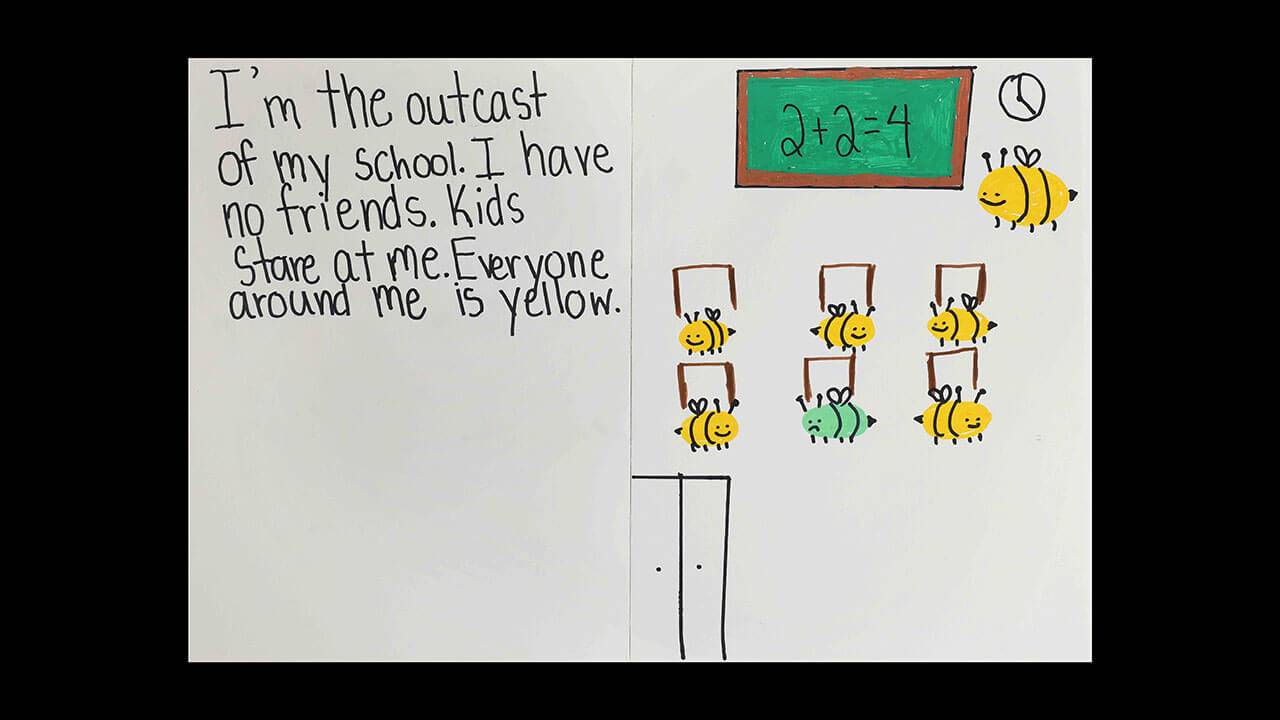 I'm the outcast
of my school. I have
no friends. Kids
stare at me. Everyone
around me is yellow.
2+2=4